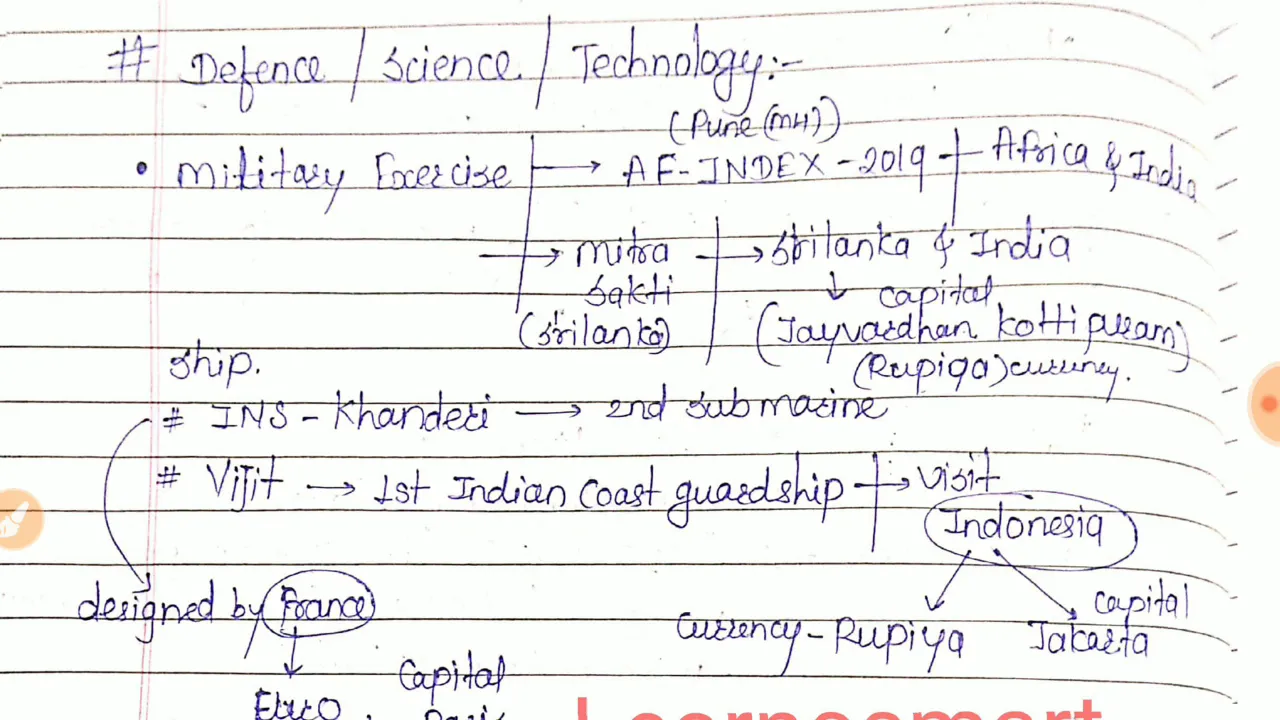 # Defence / Science / Technology:-
(Pune (MH))
• Military Exercise → AF-INDEX-2019 → Africa & India
→ Mitra Sakti (Srilanka) → Srilanka & India
↓ capital
(Jayvardhan kotti puram)
(Rupiya) currency.
Ship.
# INS - Khanderi → 2nd submarine
# Vijit → 1st Indian Coast guardship → Visit
Indonesia
designed by France
Currency - Rupiya
capital
Jakarta
Euro.
Capital
Paris